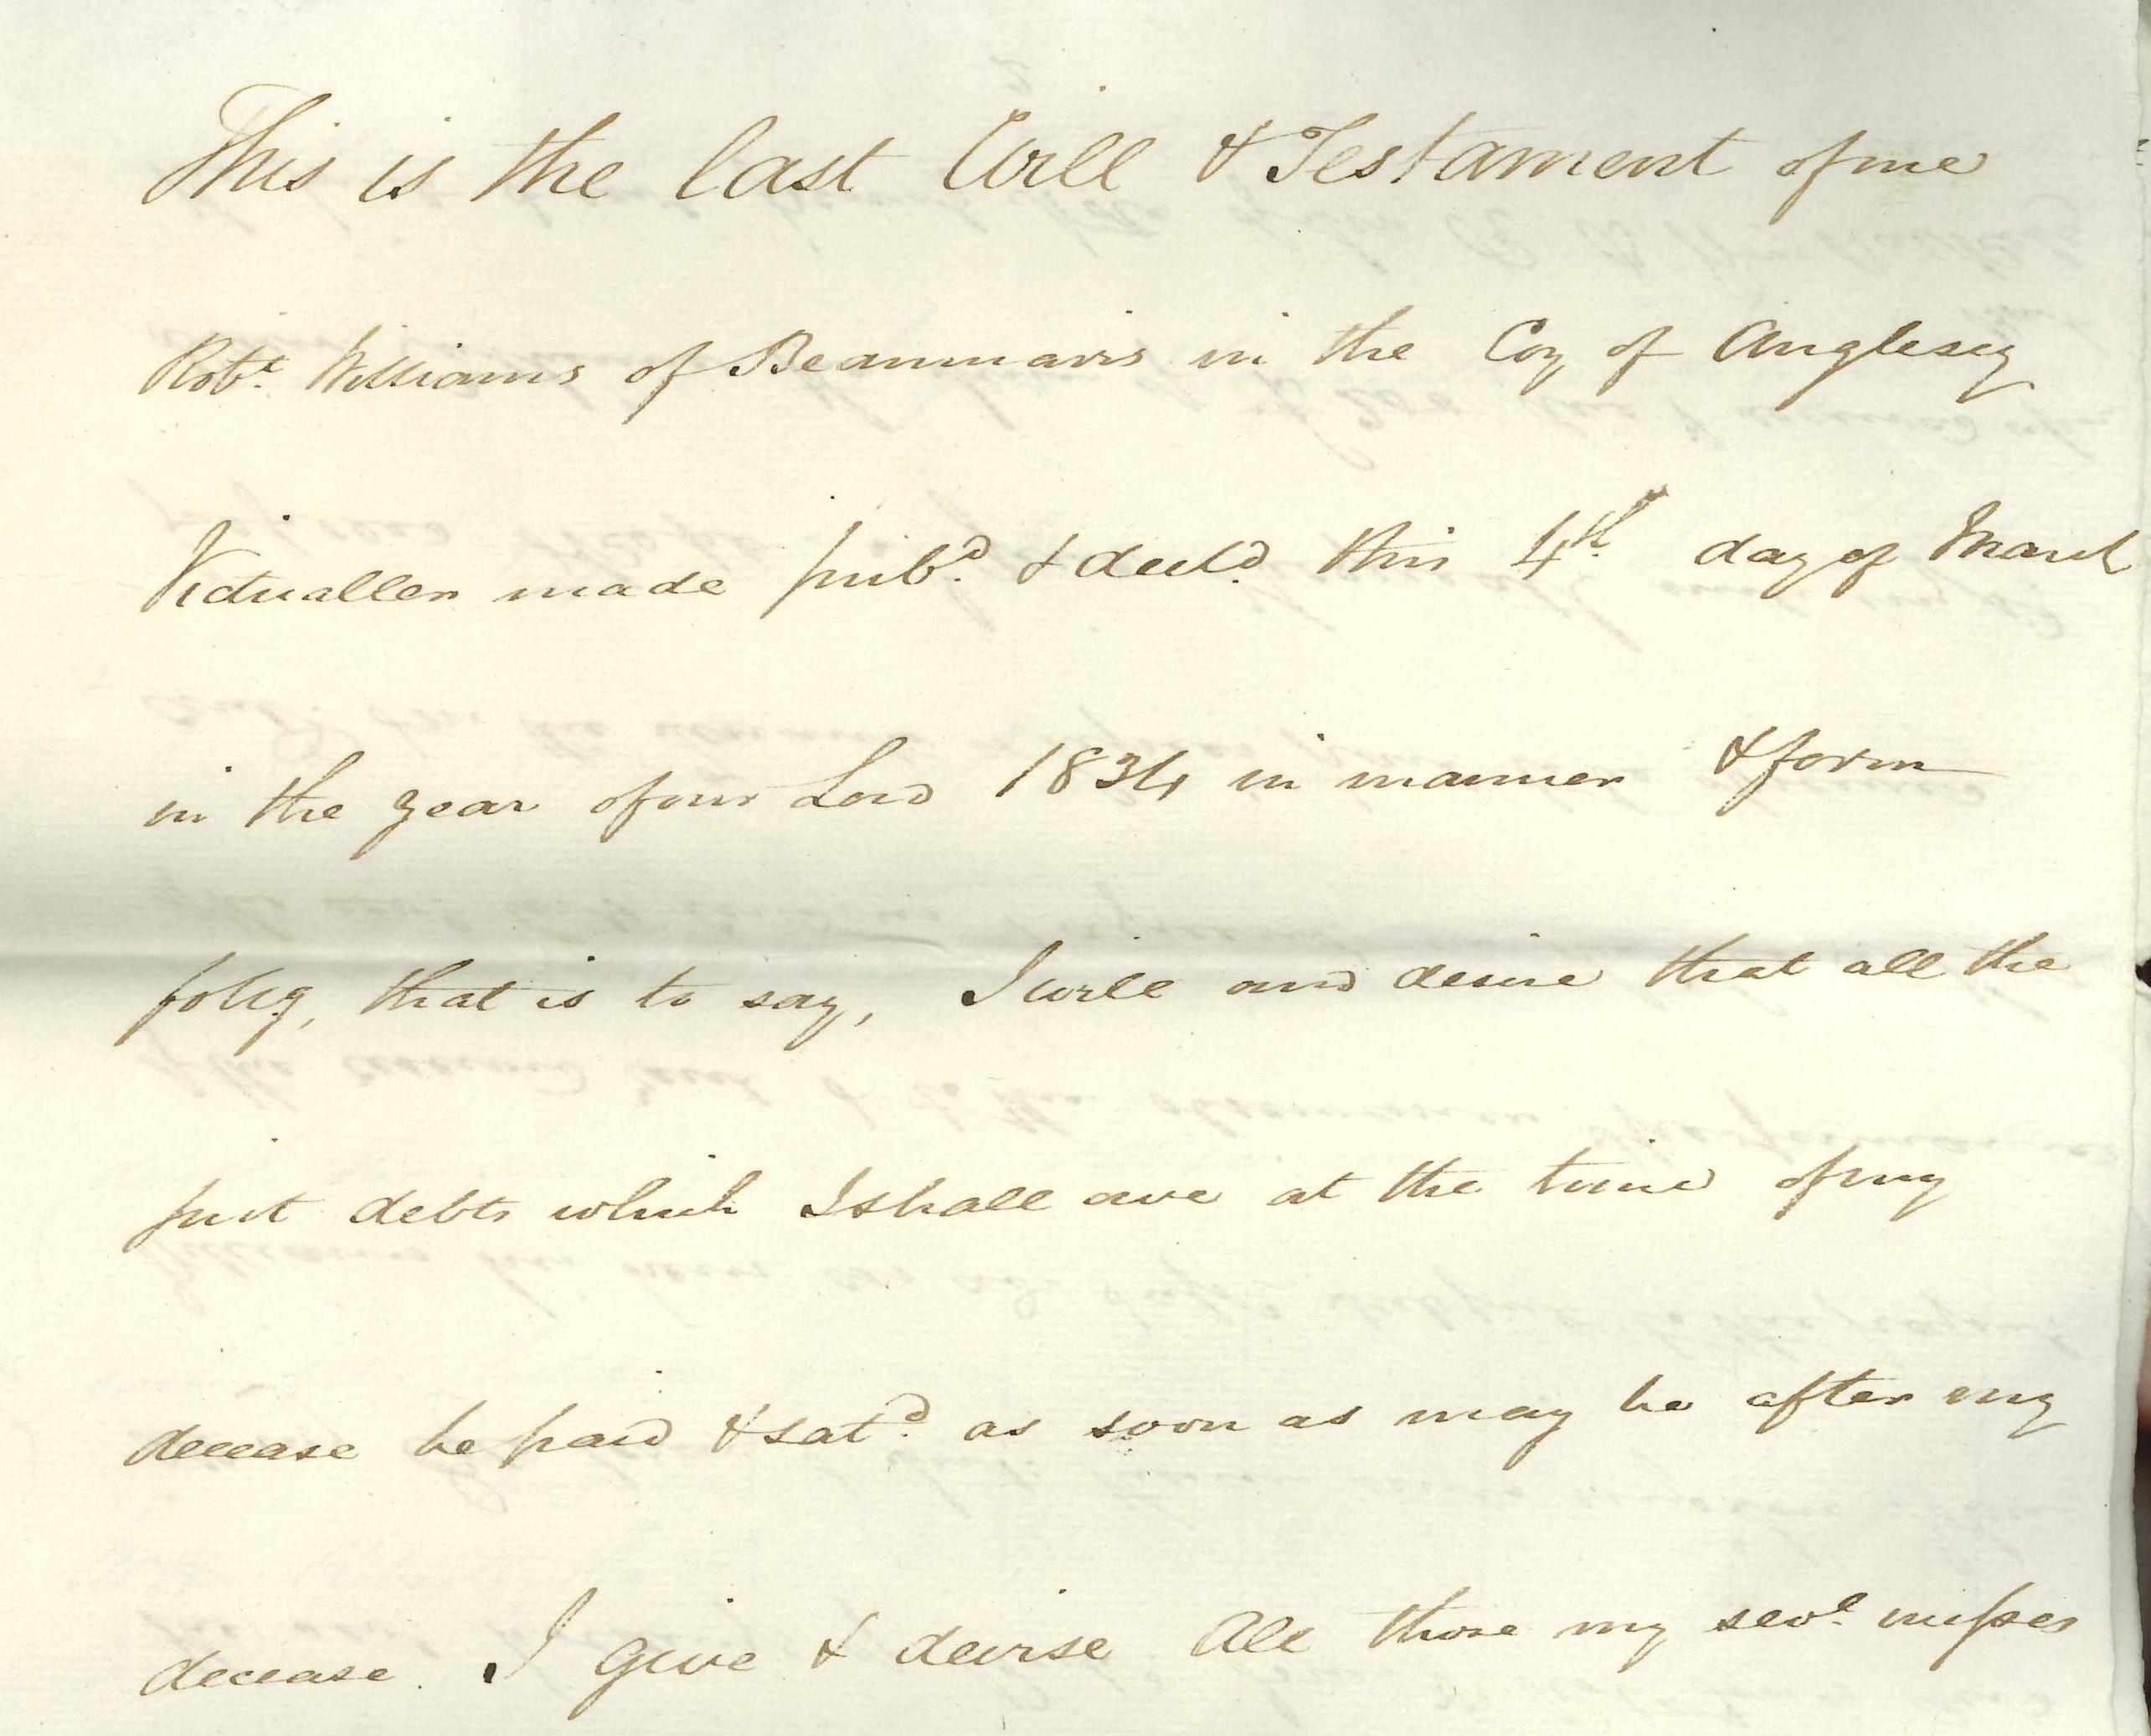 This is the last Will & Testament of me
Robt. Williams of Beaumaris in the Coy of Anglesey
Victualler made pubd. & decld. this 4th. day of March
in the year of our Lord 1834 in manner & form
follg, that is to say, I will and desire that all the
just debts which I shall owe at the time of my
decease be paid & satd. as soon as may be after my
decease. I give & devise All those my sevl. messes